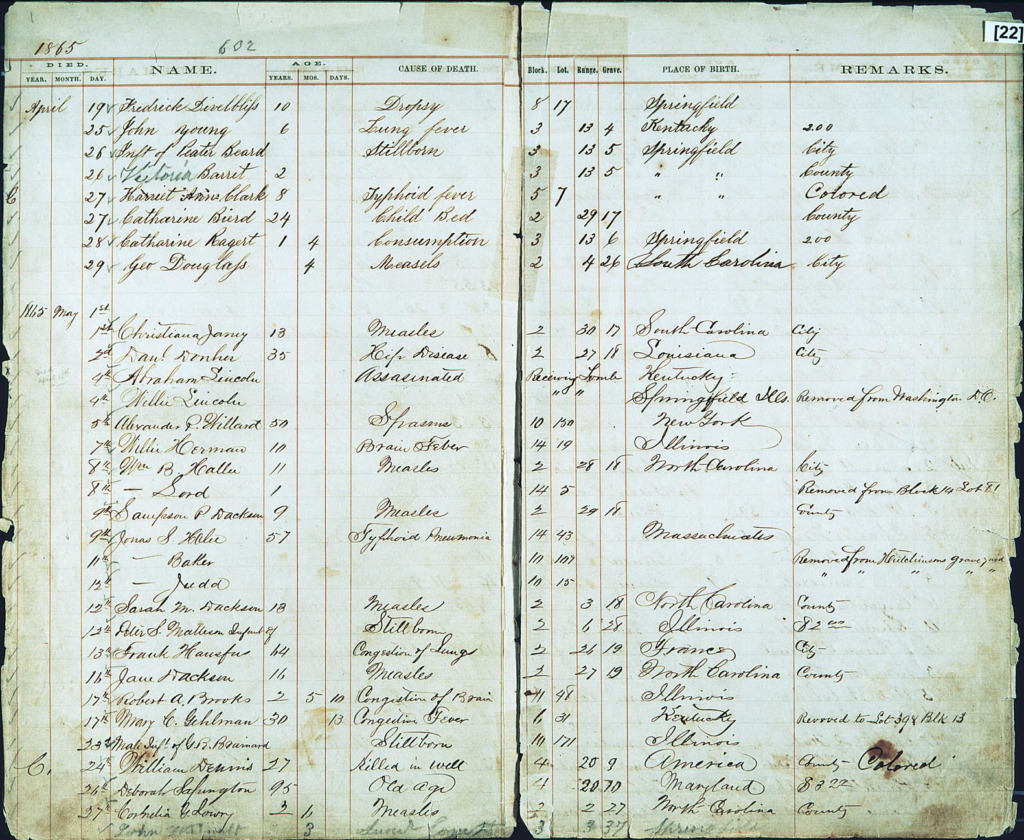 [22]
1865 602
DIED. AGE.
YEAR. MONTH. DAY. NAME. YEARS. MOS. DAYS. CAUSE OF DEATH. Block. Lot. Range. Grave. PLACE OF BIRTH. REMARKS.
April 19 Fredrick Divelbliss 10 Dropsy 8 17 Springfield
25 John Young 6 Lung fever 3 13 4 Kentacky 200
26 Inft of Peater Beard Stillborn 3 13 5 Springfield City
26 Victoria Barrit 2 3 13 5 " " County
C 27 Harriet Ann Clark 8 Typhoid fever 5 7 Colored
27 Catharine Bird 24 Child Bed 2 29 17 County
28 Catharine Ragert 1 4 Consumption 3 13 6 Springfield 200
29 Geo Douglass 4 Measels 2 4 26 South Carolina City
1865 May 1st
1st Christiana Janey 13 Measles 2 30 17 South Carolina City
2d Danl Donher 35 Hip Disease 2 27 18 Louisiana City
4th Abraham Lincoln Assasinated Receiving Tomb Kentucky
4th Willie Lincoln " " Springfield Ills. Removed from Washington D.C.
5th Alexander P. Willard 50 Spasms 10 150 New York
7th Willie Herman 10 Brain Fever 14 19 Illinois
8th Wm B. Halle 11 Measles 2 28 18 North Carolina City
8th — Lord 1 14 5 Removed from Block 14 Lot 81
9th Sampson P Dackson 9 Measles 2 29 18 County
9th Jonas S. 57 Tyfhoid Pneumonia 14 43 Massachusates
11th — Baker 10 107 Removed from Hutchinsons graveyard
12th — Judd 10 15 " " " "
12th Sarah M. Dackson 13 Measles 2 3 18 North Carolina County
12th Peter S. Matteson Infant of Stillborn 2 6 28 Illinois $2.00
13th Frank 44 Congestion of Lungs 2 26 19 France City
16th Jane Dackson 16 Measles 2 27 19 North Carolina County
17th Robert A. Brooks 2 5 10 Congestion of Brain 11 48 Illinois
17th Mary C. Gehlman 30 13 Congestive Fever 6 31 Kentucky Revoved to Lot 398 Blk 13
23d Male Inft. of G.B. Stillborn 10 171 Illinois
C. 24th William Dennis 27 Killed in well 4 20 9 America County Colored
26th Deborah 95 Old age 4 20 10 Maryland
27th Cornelia G. Lowry 2 Measles 2 2 27 North Carolina County
John 3 3 3 37 Springfield